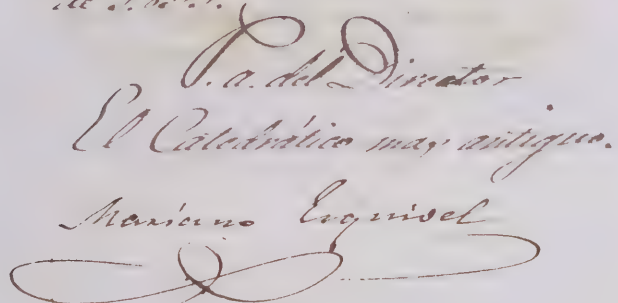 P. a. del Director
El Catedrático mas antiguo.
Mariano Esquivel